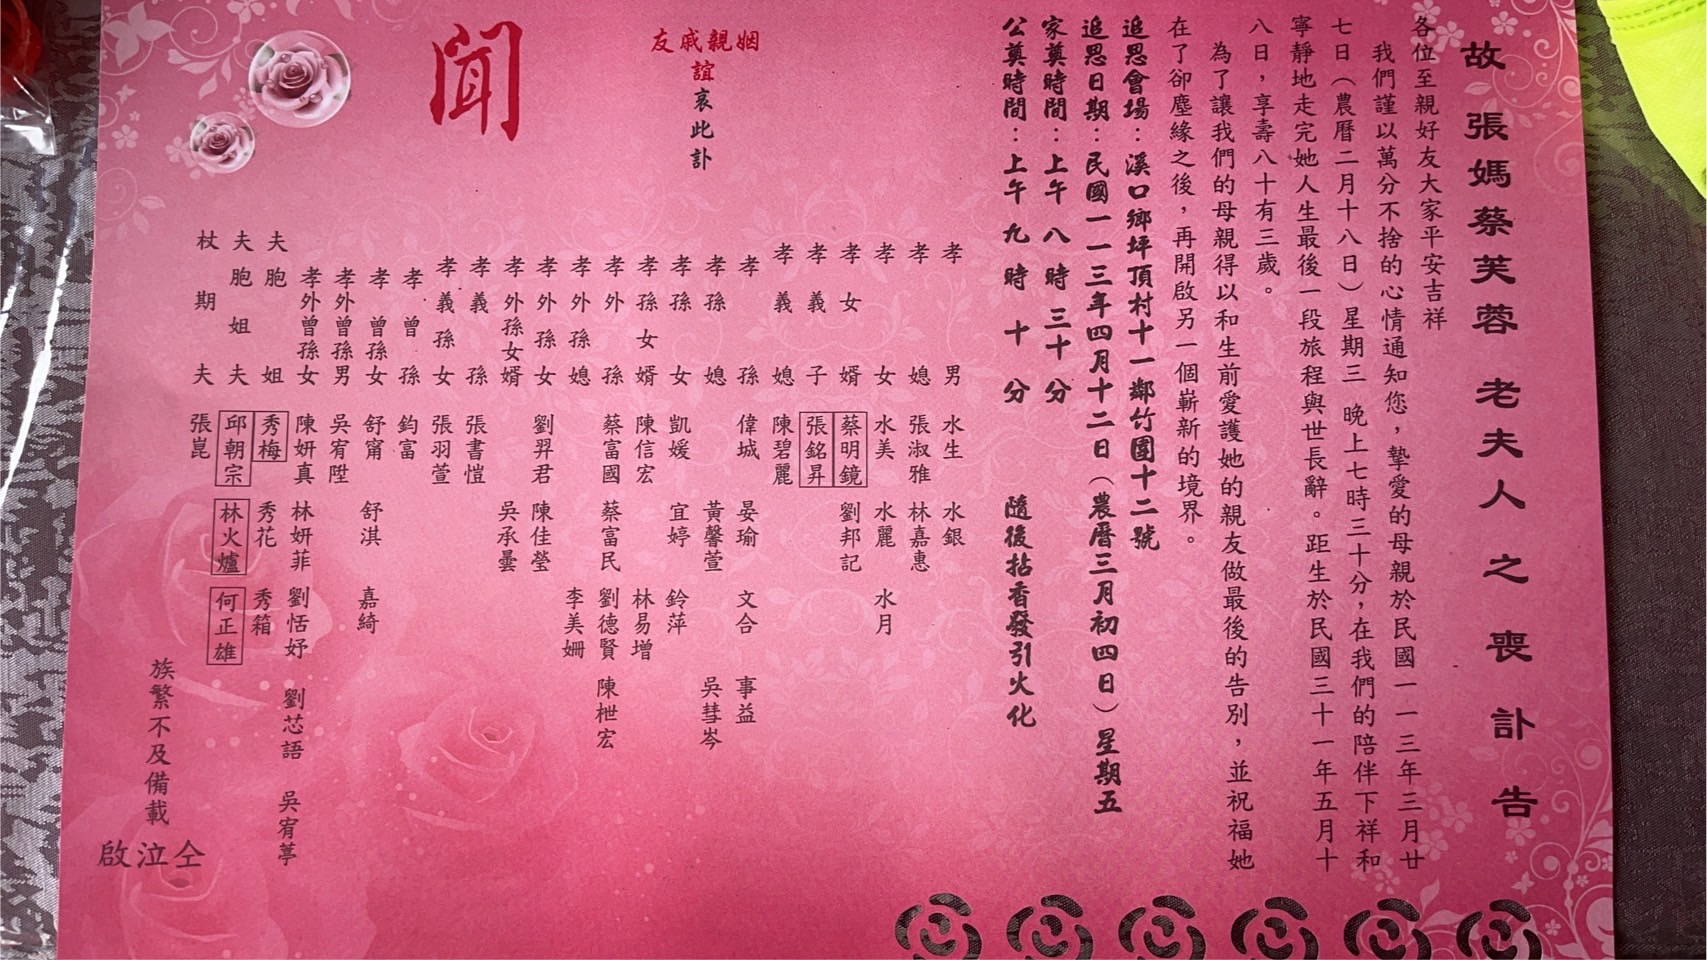 故張媽蔡芙蓉老夫人之喪訃告
各位至親好友大家平安吉祥
我們謹以萬分不捨的心情通知您，摯愛的母親於民國一一三年三月廿
七日（農曆二月十八日）星期三 晚上七時三十分，在我們的陪伴下祥和
寧靜地走完她人生最後一段旅程與世長辭。距生於民國三十一年五月十
八日，享壽八十有三歲。
為了讓我們的母親得以和生前愛護她的親友做最後的告別，並祝福她
在了卻塵緣之後，再開啟另一個嶄新的境界。
追思會場：溪口鄉坪頂村十一鄰竹圍十二號
追思日期：民國一一三年四月十二日（農曆三月初四日）星期五
家奠時間：上午八時三十分
公奠時間：上午九時十分 隨後拈香發引火化
孝男 水生 水銀
孝媳 張淑雅 林嘉惠
孝女 水美 水麗 水月
孝女婿 蔡明鏡 劉邦記
孝義子 張銘昇
孝義媳 陳碧麗
孝孫 偉城 晏瑜 文合 事益
孝孫媳 黃馨萱 吳彗岑
孝孫女 凱媛 宜婷 鈴萍
孝孫女婿 陳信宏 林易增
孝外孫 蔡富國 蔡富民 劉德賢 陳枻宏
孝外孫媳 李美姍
孝外孫女 劉羿君 陳佳瑩
孝外孫女婿 吳承曇
孝義孫 張書愷
孝義孫女 張羽萱
孝曾孫 鈞富
孝曾孫女 舒甯 舒淇 嘉綺
孝外曾孫男 吳宥陞
孝外曾孫女 陳妍真 林妍菲 劉恬妤 劉芯語 吳宥葶
夫胞姐 秀梅 秀花 秀箱
夫胞姐夫 邱朝宗 林火爐 何正雄
杖期夫 張崑
族繁不及備載
仝泣啟
姻親戚友
誼哀此訃
聞